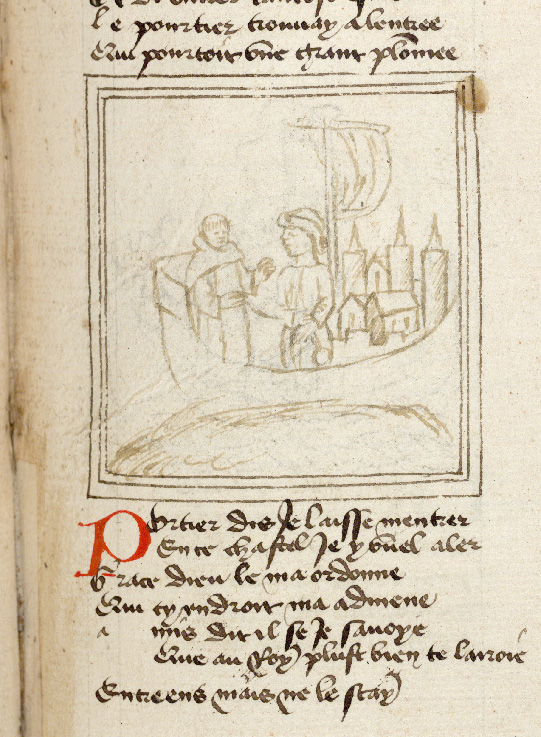 le pourtier trouuay a lentree
Qui pourtoit vne grant plomee
Portier dis Je laisse mentrer
En ce chastel Je y vuel aler
Grace dieu le ma ordonne
Qui cy endroit ma admene
a mis dit il se Je sauoye
Que au Roy plust bien te lairoie
Entreens mais ne le scay